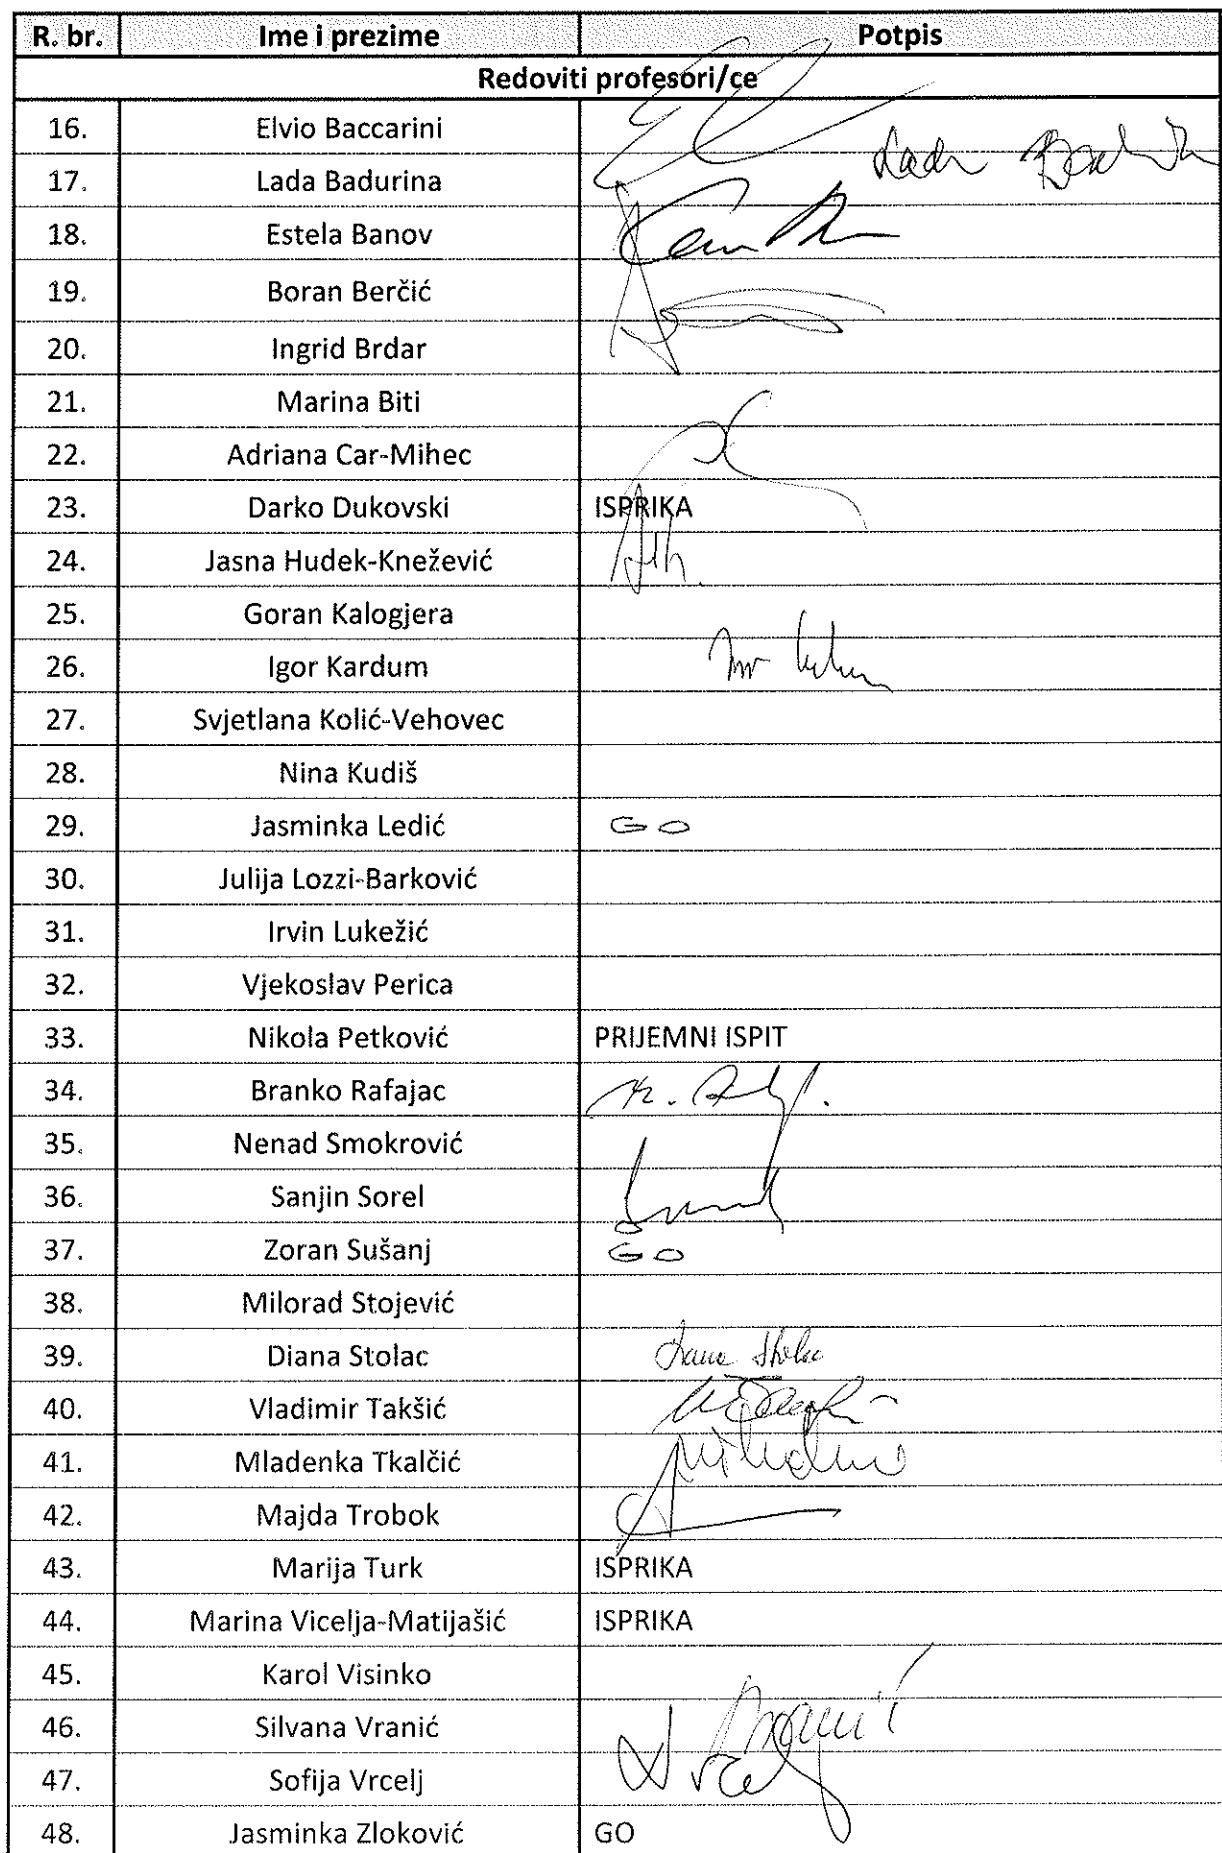 R. br. Ime i prezime Potpis
Redoviti profesori/ce
16. Elvio Baccarini
17. Lada Badurina
18. Estela Banov
19. Boran Berčić
20. Ingrid Brdar
21. Marina Biti
22. Adriana Car-Mihec
23. Darko Dukovski ISPRIKA
24. Jasna Hudek-Knežević
25. Goran Kalogjera
26. Igor Kardum
27. Svjetlana Kolić-Vehovec
28. Nina Kudiš
29. Jasminka Ledić GO
30. Julija Lozzi-Barković
31. Irvin Lukežić
32. Vjekoslav Perica
33. Nikola Petković PRIJEMNI ISPIT
34. Branko Rafajac
35. Nenad Smokrović
36. Sanjin Sorel
37. Zoran Sušanj GO
38. Milorad Stojević
39. Diana Stolac
40. Vladimir Takšić
41. Mladenka Tkalčić
42. Majda Trobok
43. Marija Turk ISPRIKA
44. Marina Vicelja-Matijašić ISPRIKA
45. Karol Visinko
46. Silvana Vranić
47. Sofija Vrcelj
48. Jasminka Zloković GO